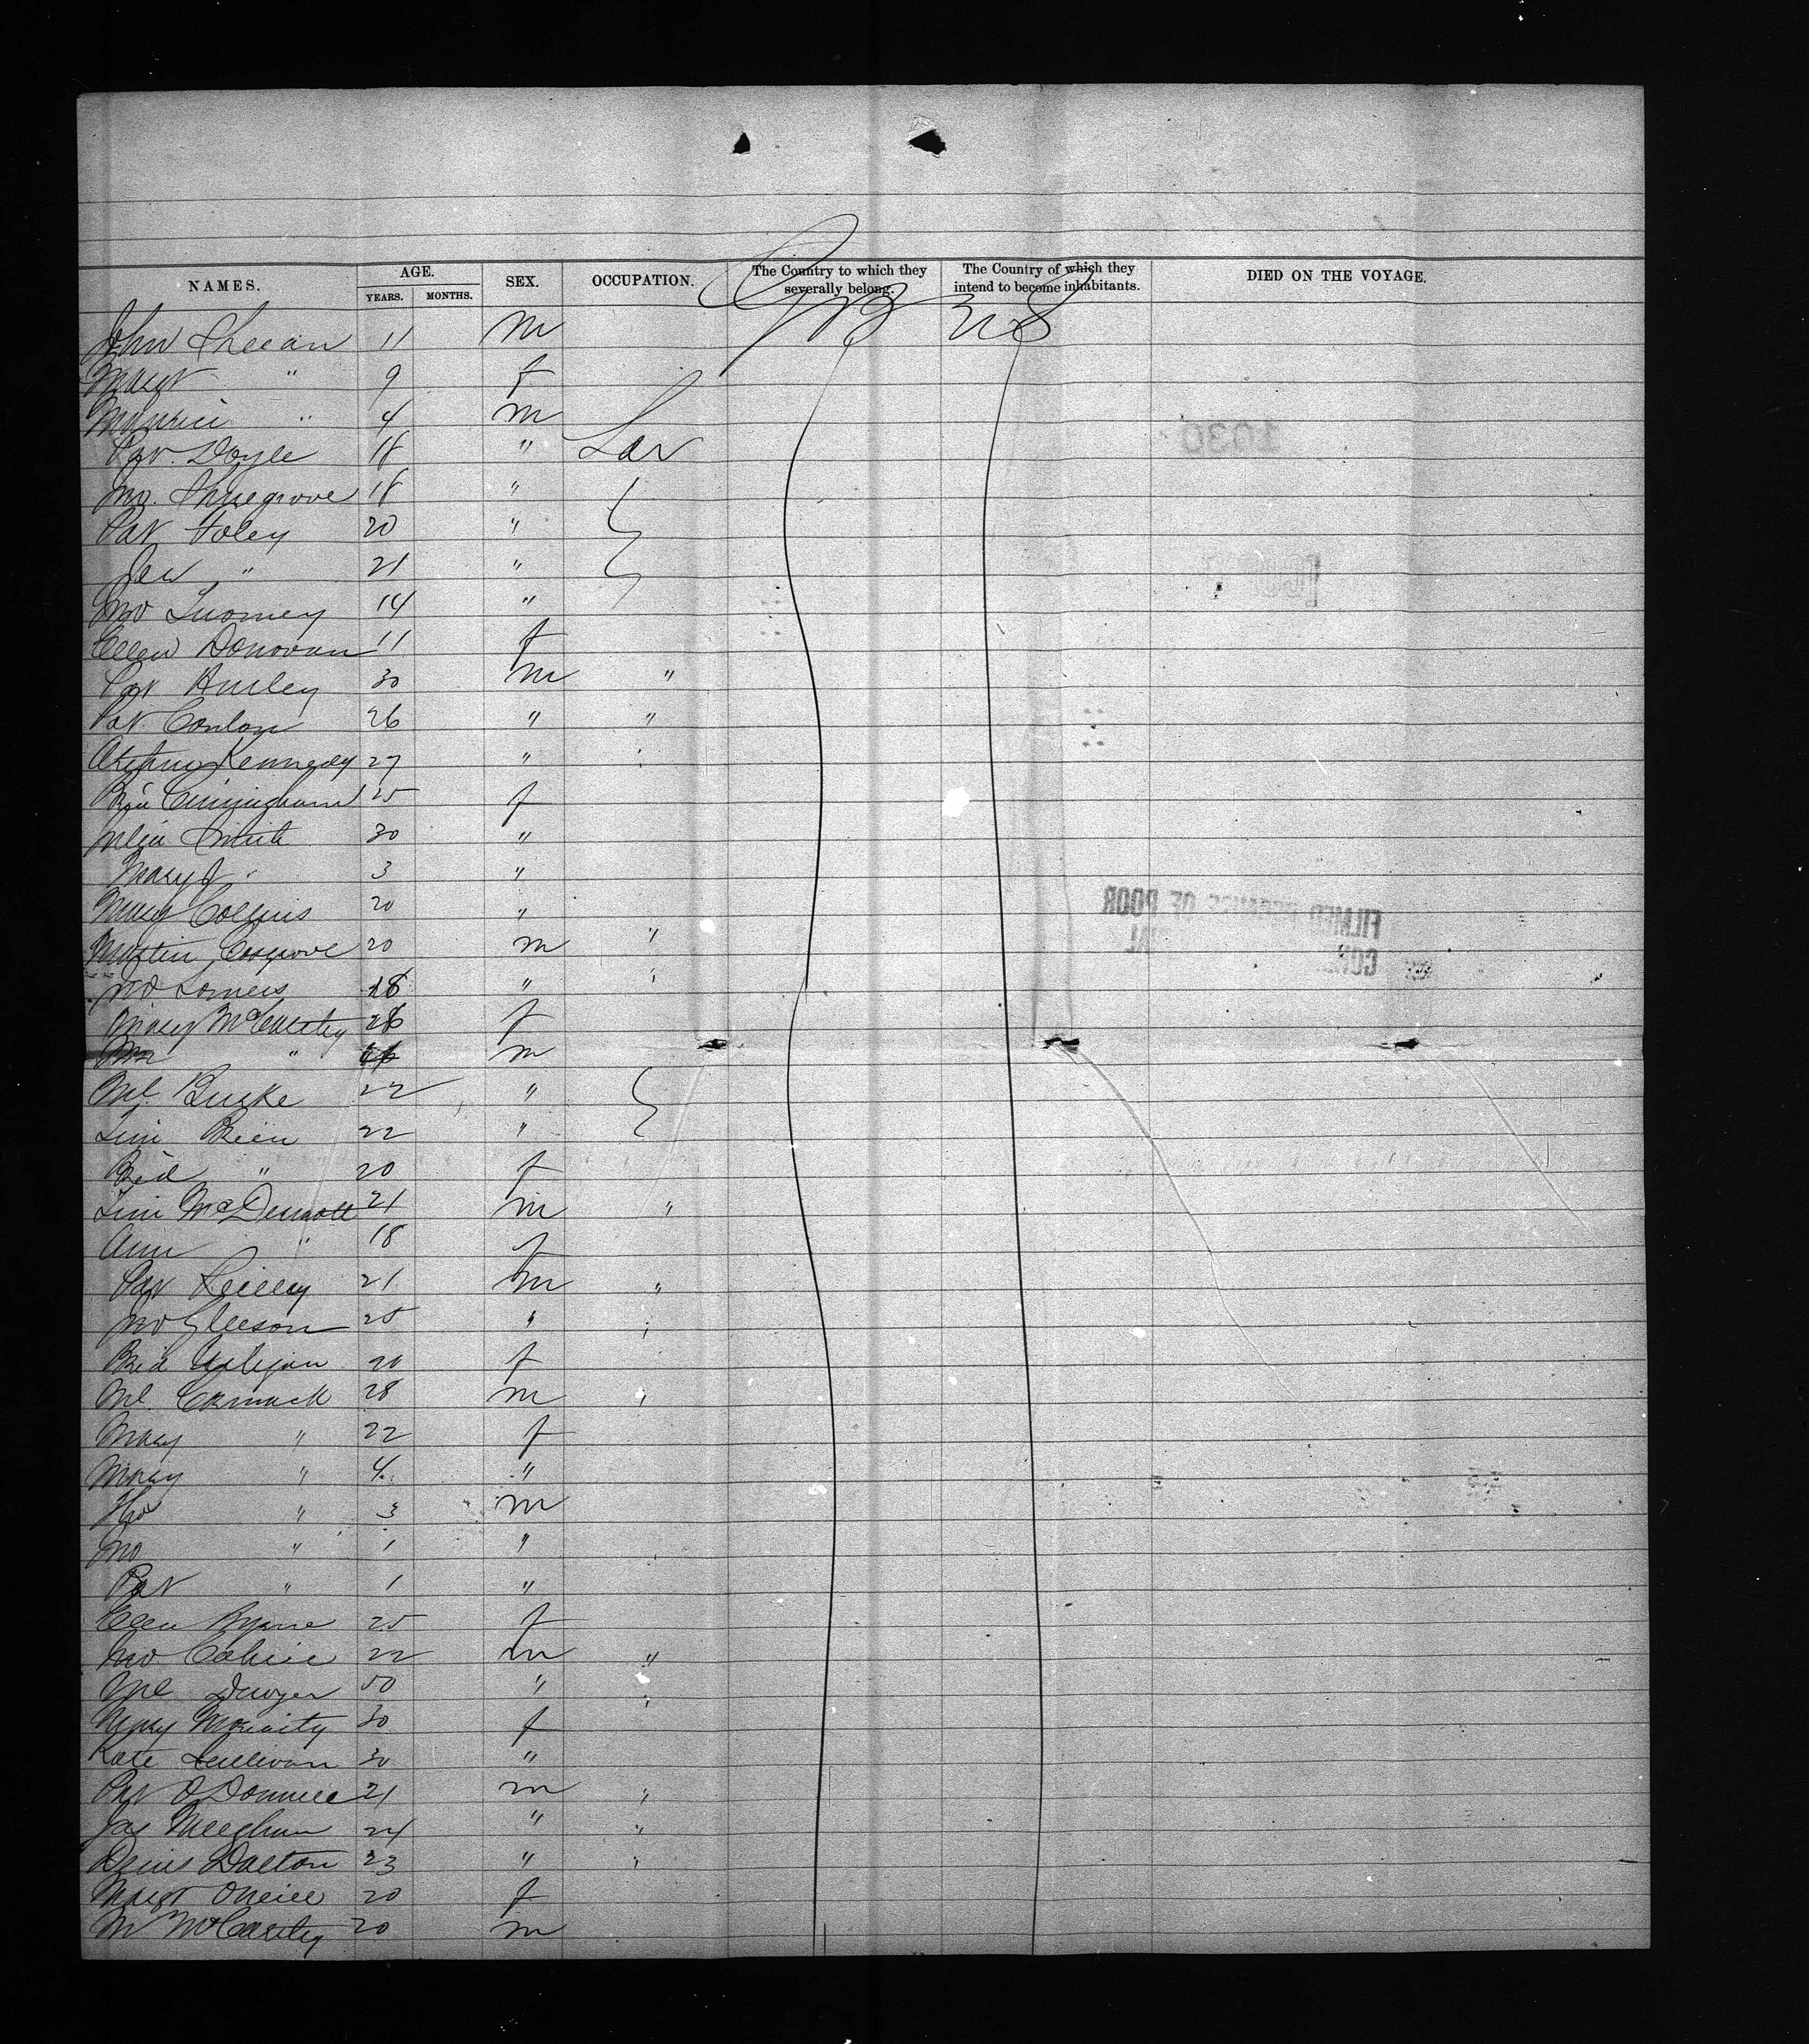 NAMES. AGE. SEX. OCCUPATION. The Country to which they severally belong. The Country of which they intend to become inhabitants. DIED ON THE VOYAGE.
YEARS. MONTHS.
GB US
John Sheean 11 m
Margt " 9 f
Maurice " 4 m
Pat Doyle 18 " Lar
Jno. 18 "
Pat Foley 20 "
" 21 "
Jno Twomey 14 "
Ellen Donovan 11 f
Pat Hurley 30 m "
Pat Conlon 26 " "
Kennedy 27 " "
Bid Cunningham 25 f
Smith 30 "
Mary J " 3 "
Mary Collins 20 "
Martin Cosgrove 20 m "
Jno Somers 18 " "
Mary McCarthy 26 f
" m
Ml Burke 22 "
Tim Brien 22 "
Bid " 20 f
Tim McDermott 21 m "
Ann " 18 f
Pat Reilley 21 m "
Jno Gleeson 25 " "
Bid 20 f
Ml. Cormack 28 m "
Mary " 22 f
Mary " 4 "
Tho " 3 m
Jno " 1 "
Pat " 1 "
Ellen Byrne 25 f
Jno Cahill 22 m "
Ml Dwyer 50 " "
Mary Moriarity 30 f
Kate Sullivan 30 "
Pat O'Donnell 21 m "
Jas Meeghan 24 " "
Denis Dalton 23 " "
Margt Oneill 20 f
M McCarthy 20 m